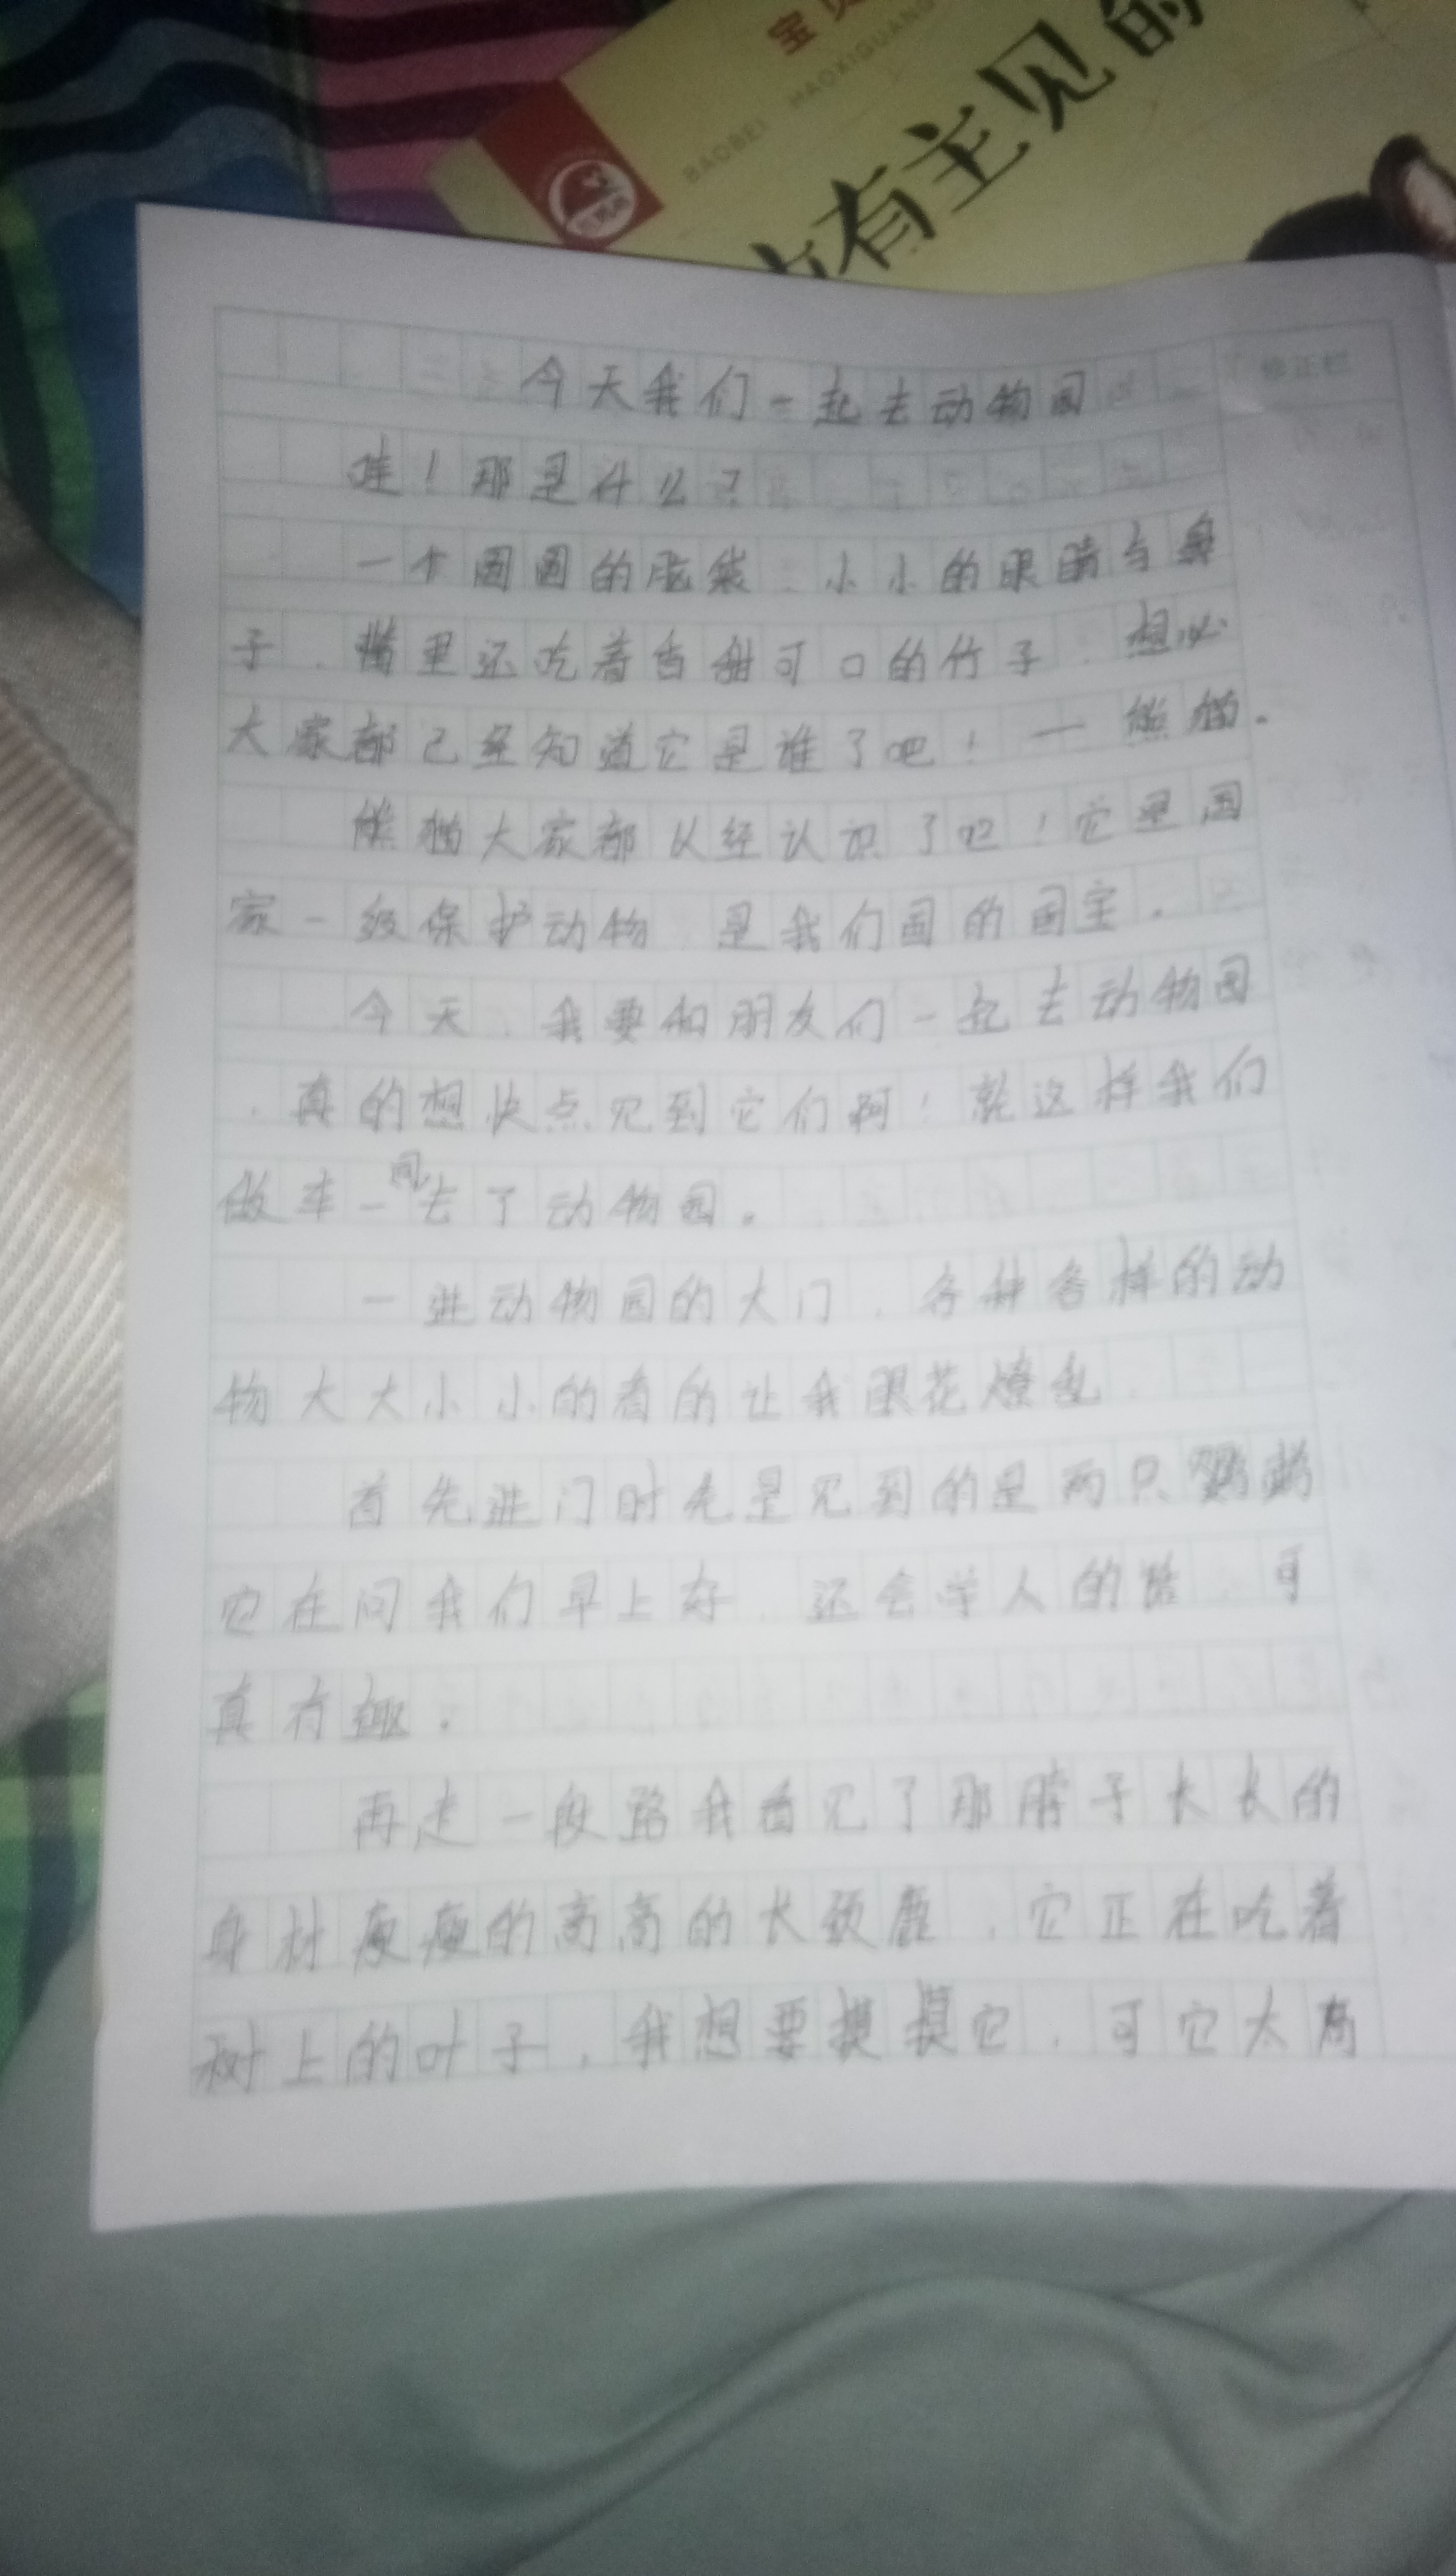 宝贝
BAOBEI HAOXIGUANG
有主见的
修正栏
今天我们一起去动物园
哇！那是什么？
一个圆圆的脑袋、小小的眼睛与鼻
子，嘴里还吃着香甜可口的竹子，想必
大家都已经知道它是谁了吧！一熊猫。
熊猫大家都以经认识了吧！它是国
家一级保护动物，是我们国的国宝。
今天，我要和朋友们一起去动物园
，真的想快点见到它们啊！就这样我们
做车一同去了动物园。
一进动物园的大门，各种各样的动
物大大小小的看的让我眼花燎乱
首先进门时先是见到的是两只鹦鹉
它在问我们早上好，还会学人的话，可
真有趣。
再走一段路我看见了那脖子长长的
身材瘦瘦的高高的长颈鹿，它正在吃着
树上的叶子，我想要摸摸它，可它太高